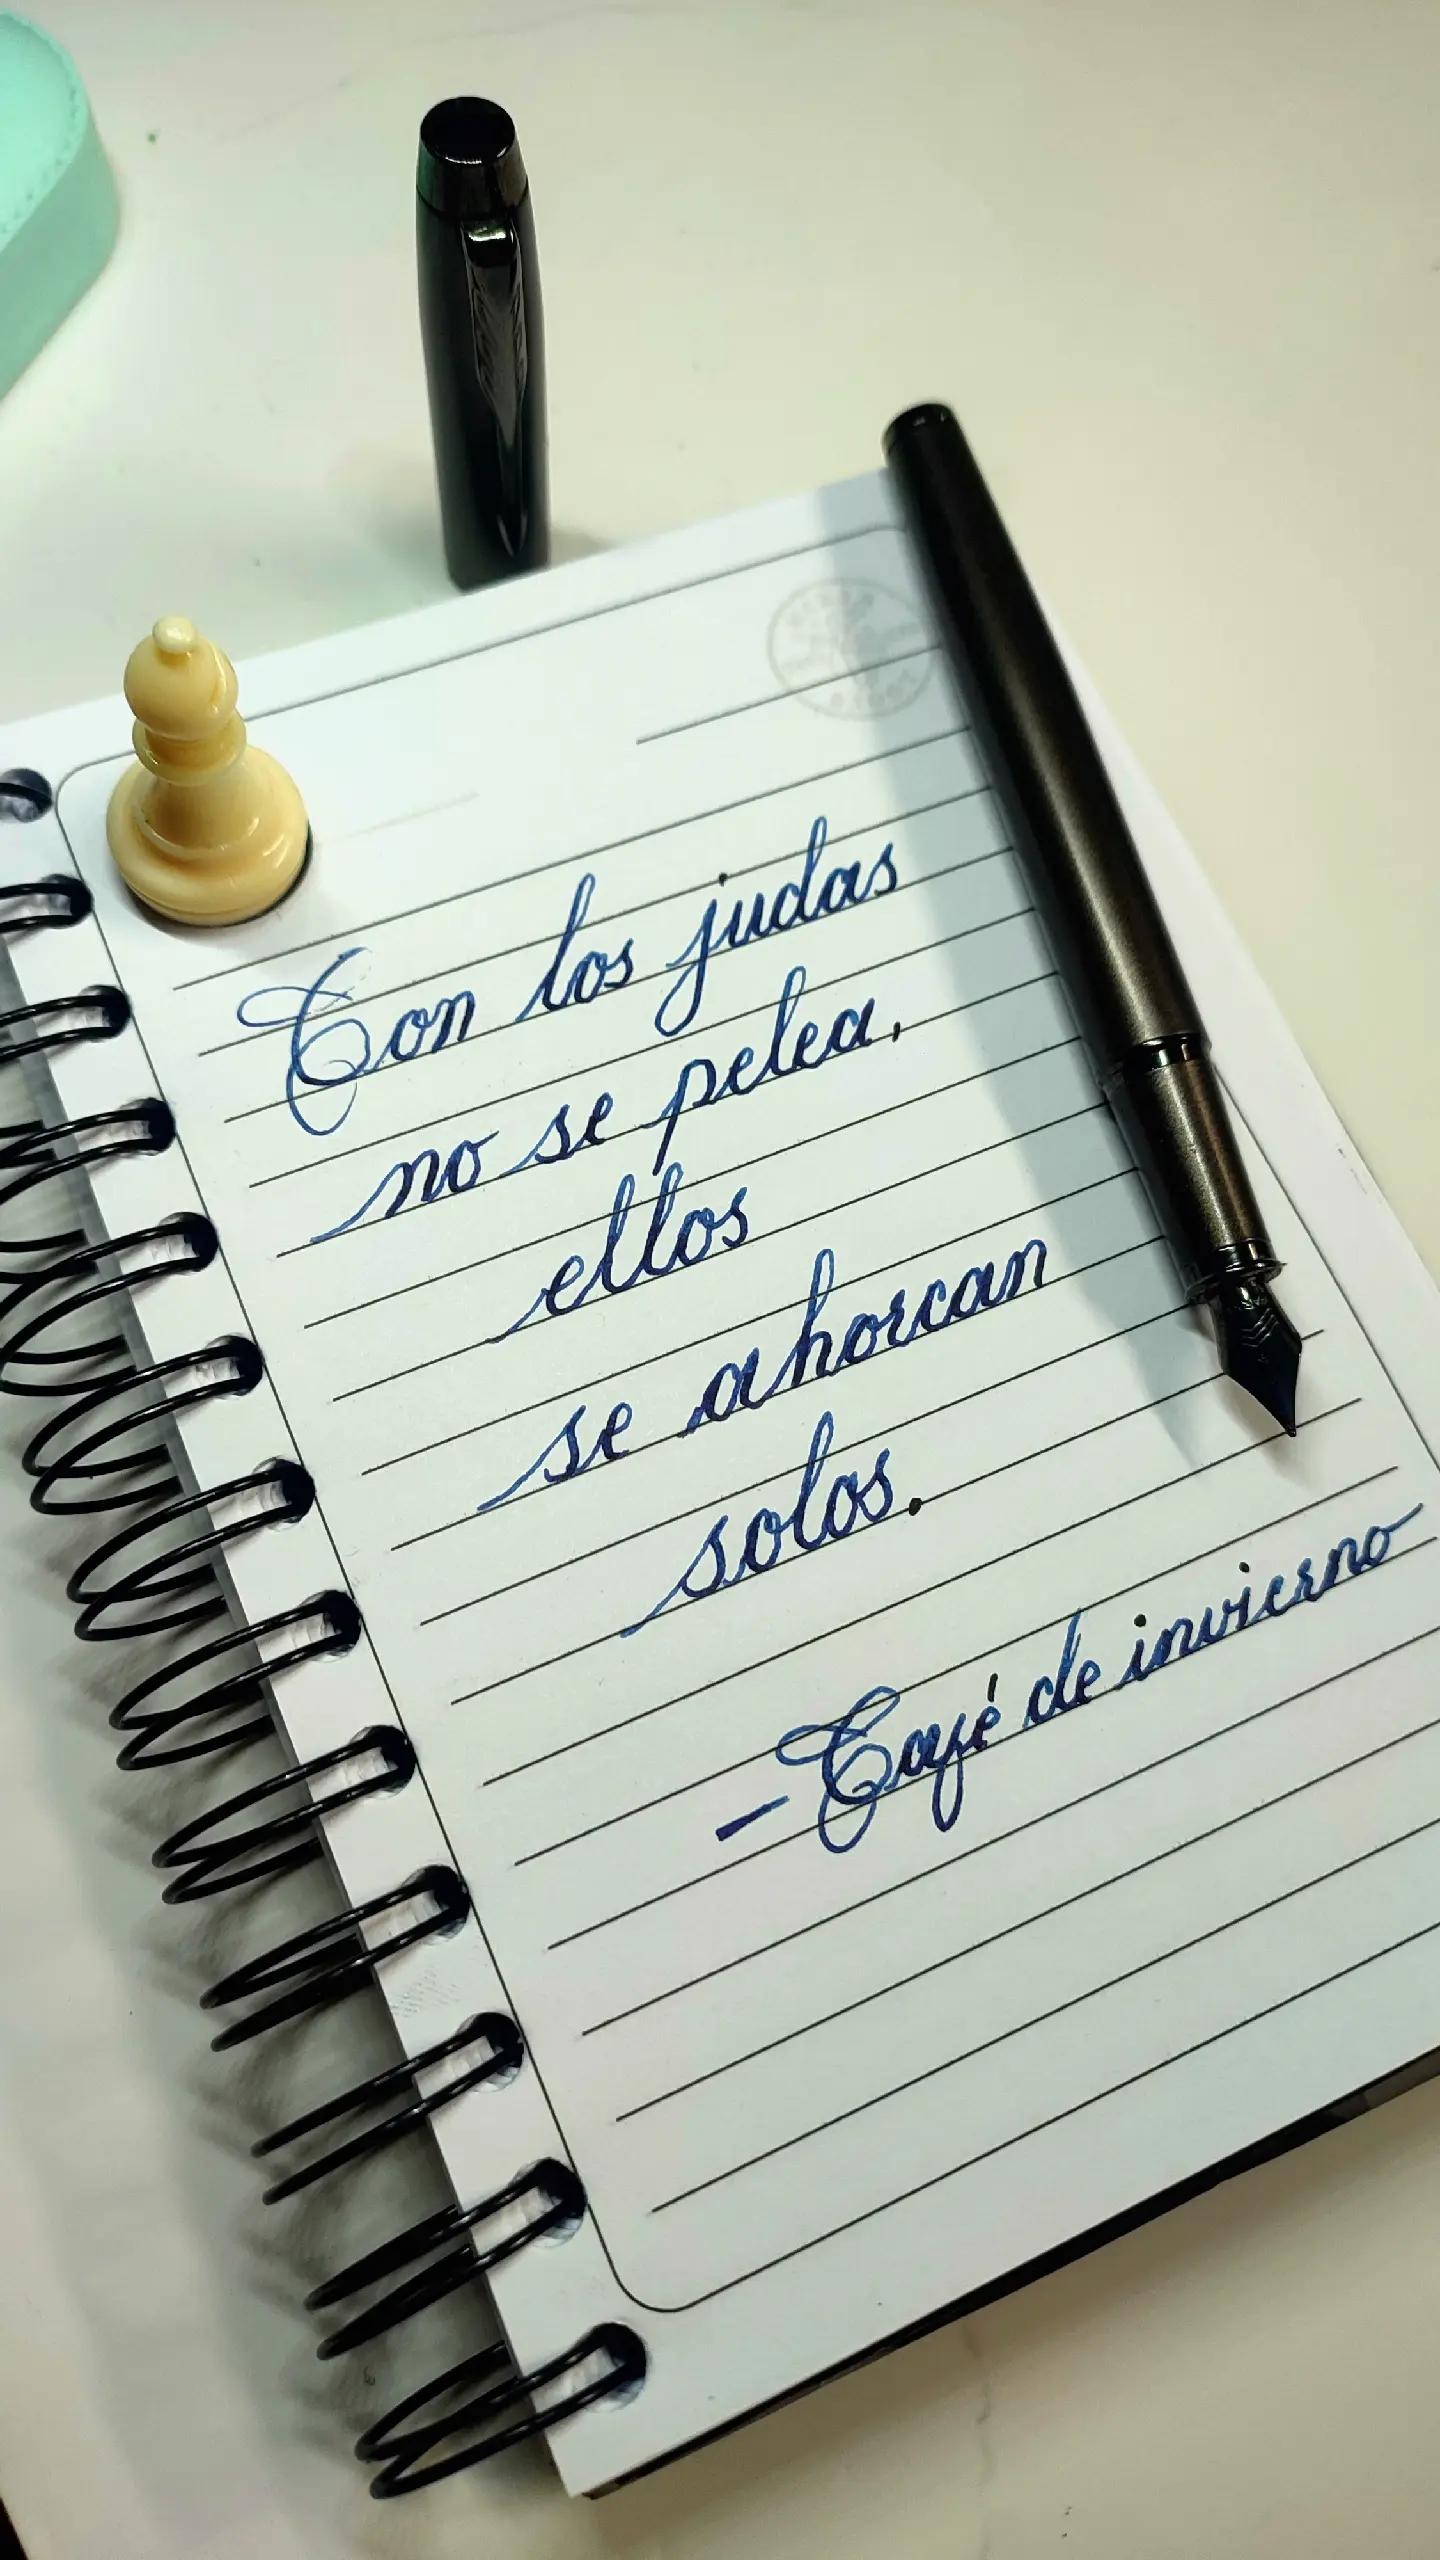 Con los judas
no se pelea,
ellos
se ahorcan
solos.
- Café de invierno